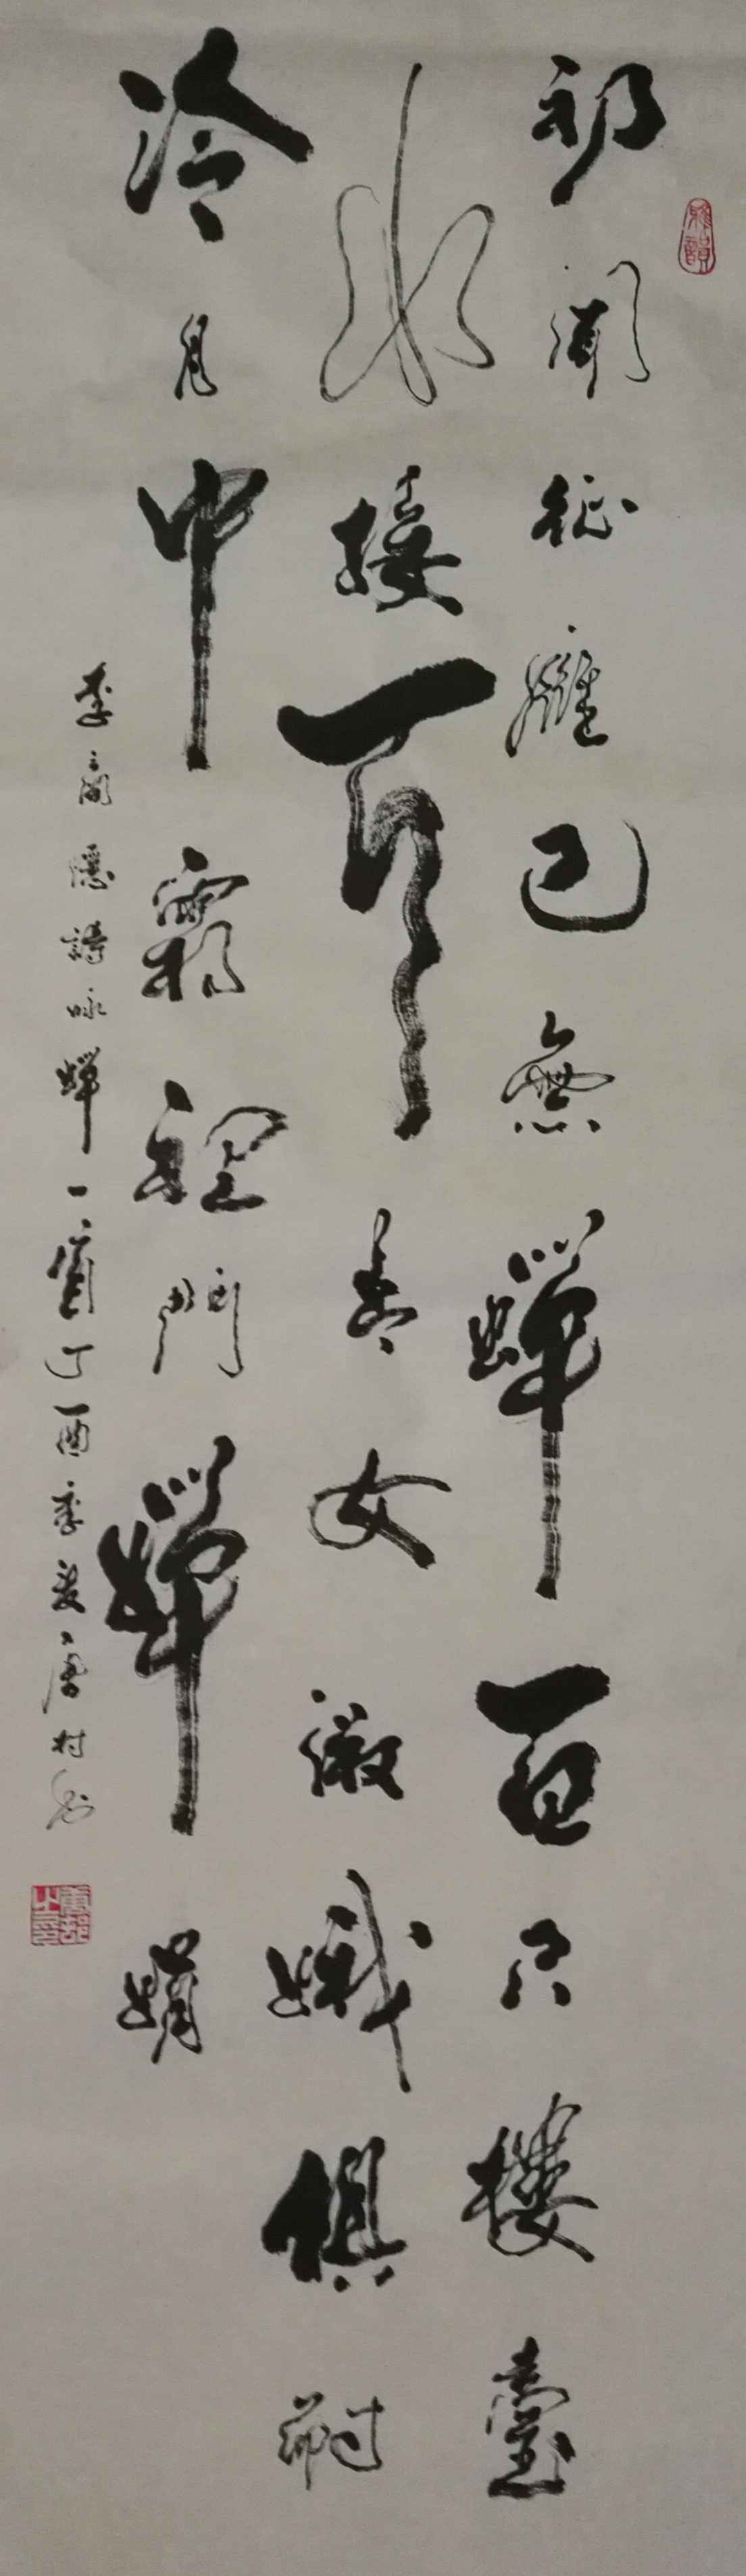 雅韻
初聞征雁已無蟬百尺樓臺
水接天青女微娥俱耐
冷月中霜裡鬥嬋娟
李商隱詩咏蟬一首丁酉季夏唐村書
唐邨之印